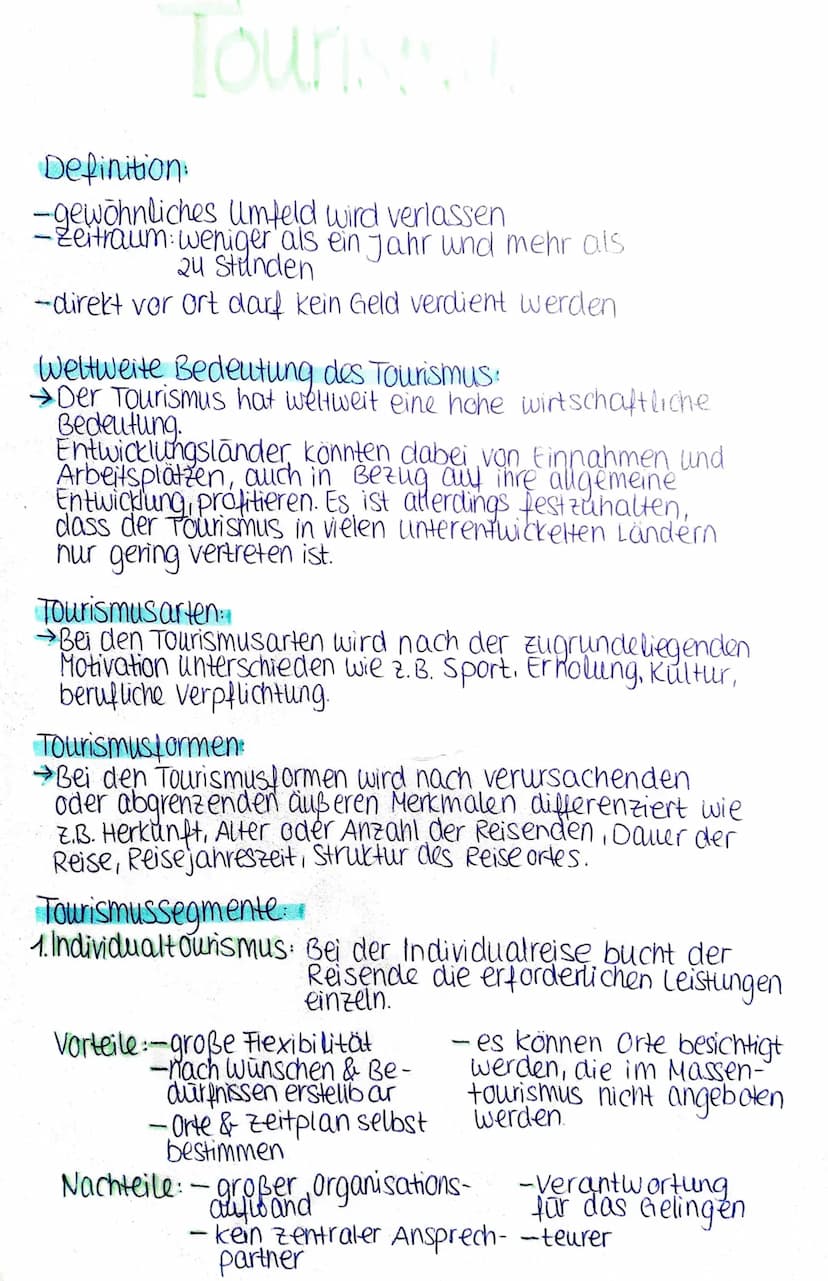 Tourismus
Definition:
-gewöhnliches Umfeld wird verlassen
-Zeitraum: weniger als ein Jahr und mehr als
24 Stunden
-direkt vor Ort darf kein Geld verdient werden
Weltweite Bedeutung des Tourismus:
→Der Tourismus hat weltweit eine hohe wirtschaftliche
Bedeutung.
Entwicklungsländer könnten dabei von Einnahmen und
Arbeitsplätzen, auch in Bezug auf ihre allgemeine
Entwicklung, profitieren. Es ist allerdings festzuhalten,
dass der Tourismus in vielen unterentwickelten Ländern
nur gering vertreten ist.
Tourismusarten:
→Bei den Tourismusarten wird nach der zugrundeliegenden
Motivation unterschieden wie z.B. Sport, Erholung, Kultur,
berufliche Verpflichtung.
Tourismusformen:
→Bei den Tourismusformen wird nach verursachenden
oder abgrenzenden äußeren Merkmalen differenziert wie
z.B. Herkunft, Alter oder Anzahl der Reisenden, Dauer der
Reise, Reisejahreszeit, Struktur des Reiseortes.
Tourismussegmente:
1. Individualtourismus: Bei der Individualreise bucht der
Reisende die erforderlichen Leistungen
einzeln.
Vorteile: -große Flexibilität
-nach Wünschen & Be-
dürfnissen erstellbar
-Orte & Zeitplan selbst
bestimmen
- es können Orte besichtigt
werden, die im Massen-
tourismus nicht angeboten
werden.
Nachteile: - großer Organisations-
aufwand
- kein zentraler Ansprech-
partner
-Verantwortung
für das Gelingen
-teurer